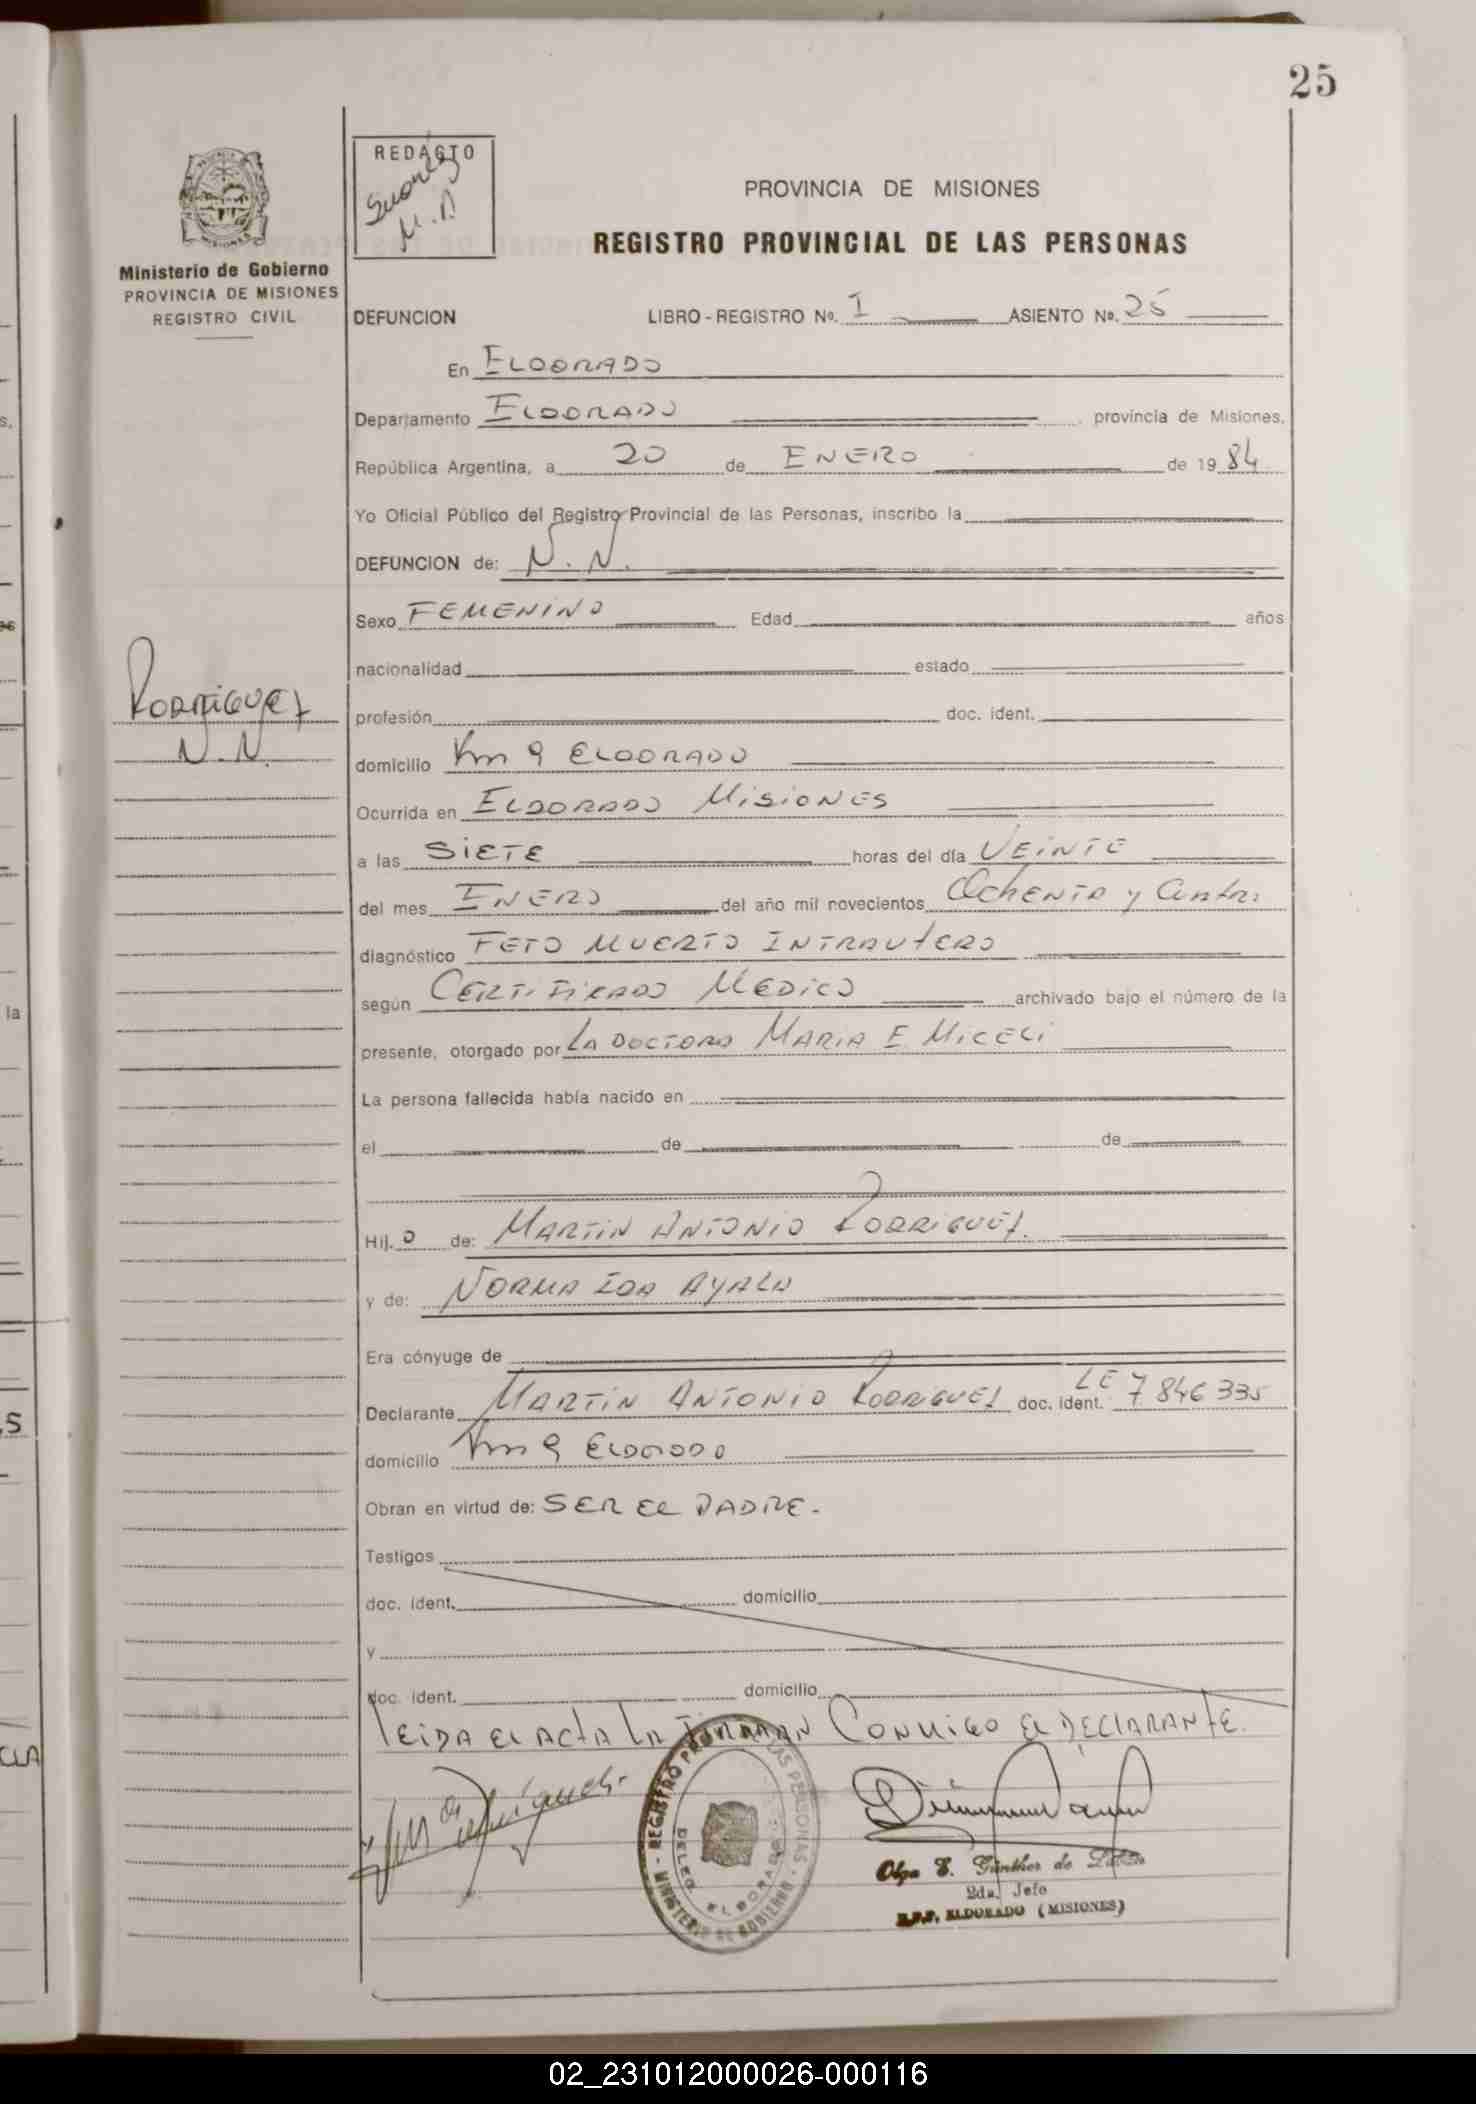 25
REDACTO
Suarez
M.A
Ministerio de Gobierno
PROVINCIA DE MISIONES
REGISTRO CIVIL
PROVINCIA DE MISIONES
REGISTRO PROVINCIAL DE LAS PERSONAS
DEFUNCION LIBRO - REGISTRO No. I ASIENTO No. 25
En ELDORADO
Departamento ELDORADO provincia de Misiones,
República Argentina, a 20 de ENERO de 19 84
Yo Oficial Público del Registro Provincial de las Personas, inscribo la
DEFUNCION de: N. N.
Sexo FEMENINO Edad años
nacionalidad estado
RODRIGUEZ
N. N.
profesión doc. ident.
domicilio Km 9 ELDORADO
Ocurrida en ELDORADO MISIONES
a las SIETE horas del día VEINTE
del mes ENERO del año mil novecientos OCHENTA y CUATRO
diagnóstico FETO MUERTO INTRAUTERO
según CERTIFICADO MEDICO archivado bajo el número de la
presente, otorgado por LA DOCTORA MARIA E. MICELI
La persona fallecida había nacido en
el de de
Hij. O de: MARTIN ANTONIO RODRIGUEZ.
y de: NORMA IDA AYALA
Era cónyuge de
Declarante MARTIN ANTONIO RODRIGUEZ doc. ident. LE 7 846 335
domicilio Km 9 ELDORADO
Obran en virtud de: SER EL PADRE.
Testigos
doc. ident. domicilio
y
doc. ident. domicilio
LEIDA EL ACTA LA FIRMAN CONMIGO EL DECLARANTE.
REGISTRO PROV. LAS PERSONAS - MINISTERIO DE GOBIERNO
DELEG. ELDORADO
Olga E. Günther de
2da. Jefe
R.P.P. ELDORADO (MISIONES)
02_231012000026-000116